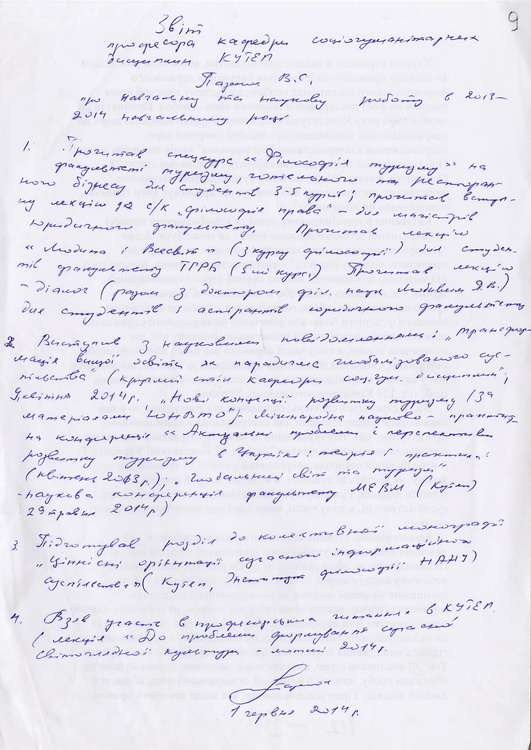 9
Звіт
професора кафедри соціогуманітарних
дисциплін КУТЕП
Пазенка В.С.,
про навчальну та наукову роботу в 2013-
2014 навчальному році
1. Прочитав спецкурс «Філософія туризму» на
факультеті туризму, готельного та ресторан-
ного бізнесу для студентів 3-5 курсів; прочитав вступ-
ну лекцію до с/к „філософія права" – для магістрів
юридичного факультету. Прочитав лекцію
«Людина і Всесвіт» (з курсу філософії) для студен-
тів факультету ТГРБ (5-ий курс.) Прочитав лекцію
- діалог (разом з доктором філ. наук Любивим Я.В.)
для студентів і аспірантів юридичного факультету
2. Виступив з науковими повідомленнями: „Трансфор-
мація вищої освіти як парадигма глобалізованого сус-
пільства" (круглий стіл кафедри соц.гум. дисциплін",
9 квітня 2014 г. „Нові концепції розвитку туризму (за
матеріалами "ЮНВТО")- Міжнародна науково-практич-
на конференція «Актуальні проблеми і перспективи
розвитку туризму в Україні: теорія і практика"
(квітень 2013 р.); „Глобальний світ та туризм"
-наукова конференція факультету МЕВМ (Кутеп)
29 травня 2014 г)
3. Підготував розділ до колективної монографії
"Ціннісні орієнтації сучасного інформаційного
суспільства» (Кутеп, Інститут філософії НАНУ)
4. Взяв участь в професорських читаннях в КУТЕП.
(лекція «До проблеми формування сучасної
світоглядної культури – лютий 2014г.
1 червня 2014г.